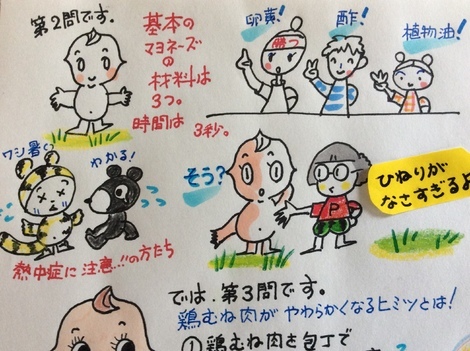 第2問です。
基本の
マヨネーズ
の
材料は
3つ。
時間は
3秒。
卵黄!
酢!
植物油!
勝つ
ワシ暑い
わかる!
熱中症に注意!!の方たち
そう?
P
ひねりが
なさすぎるよ
では、第3問です。
鶏むね肉が やわらかくなるヒミツとは!
①鶏むね肉を包丁で